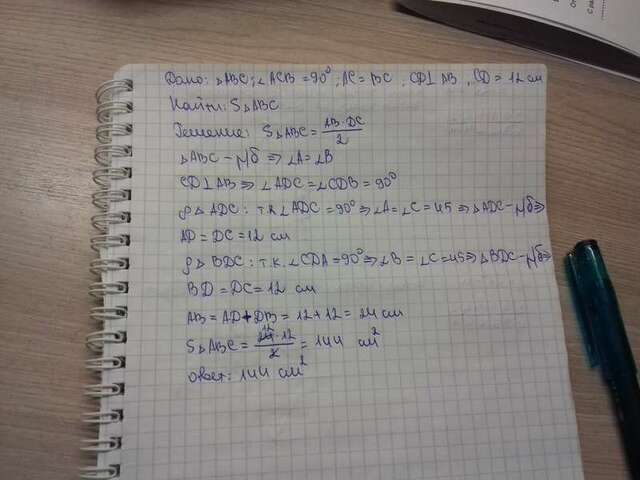 Дано: △ABC; ∠ACB = 90°, AC = BC, CD⊥AB, CD = 12 см
Найти: S△ABC
Решение: S△ABC = AB·DC/2
△ABC – р/б ⇒ ∠A = ∠B
CD⊥AB ⇒ ∠ADC = ∠CDB = 90°
ρ△ADC: т.к ∠ADC = 90° ⇒ ∠A = ∠C = 45 ⇒ △ADC – р/б ⇒
AD = DC = 12 см
ρ△BDC: т.к. ∠CDA = 90° ⇒ ∠B = ∠C = 45 ⇒ △BDC – р/б ⇒
BD = DC = 12 см
AB = AD + DB = 12 + 12 = 24 см
S△ABC = 24 12 ·12/2 = 144 см²
ответ: 144 см²